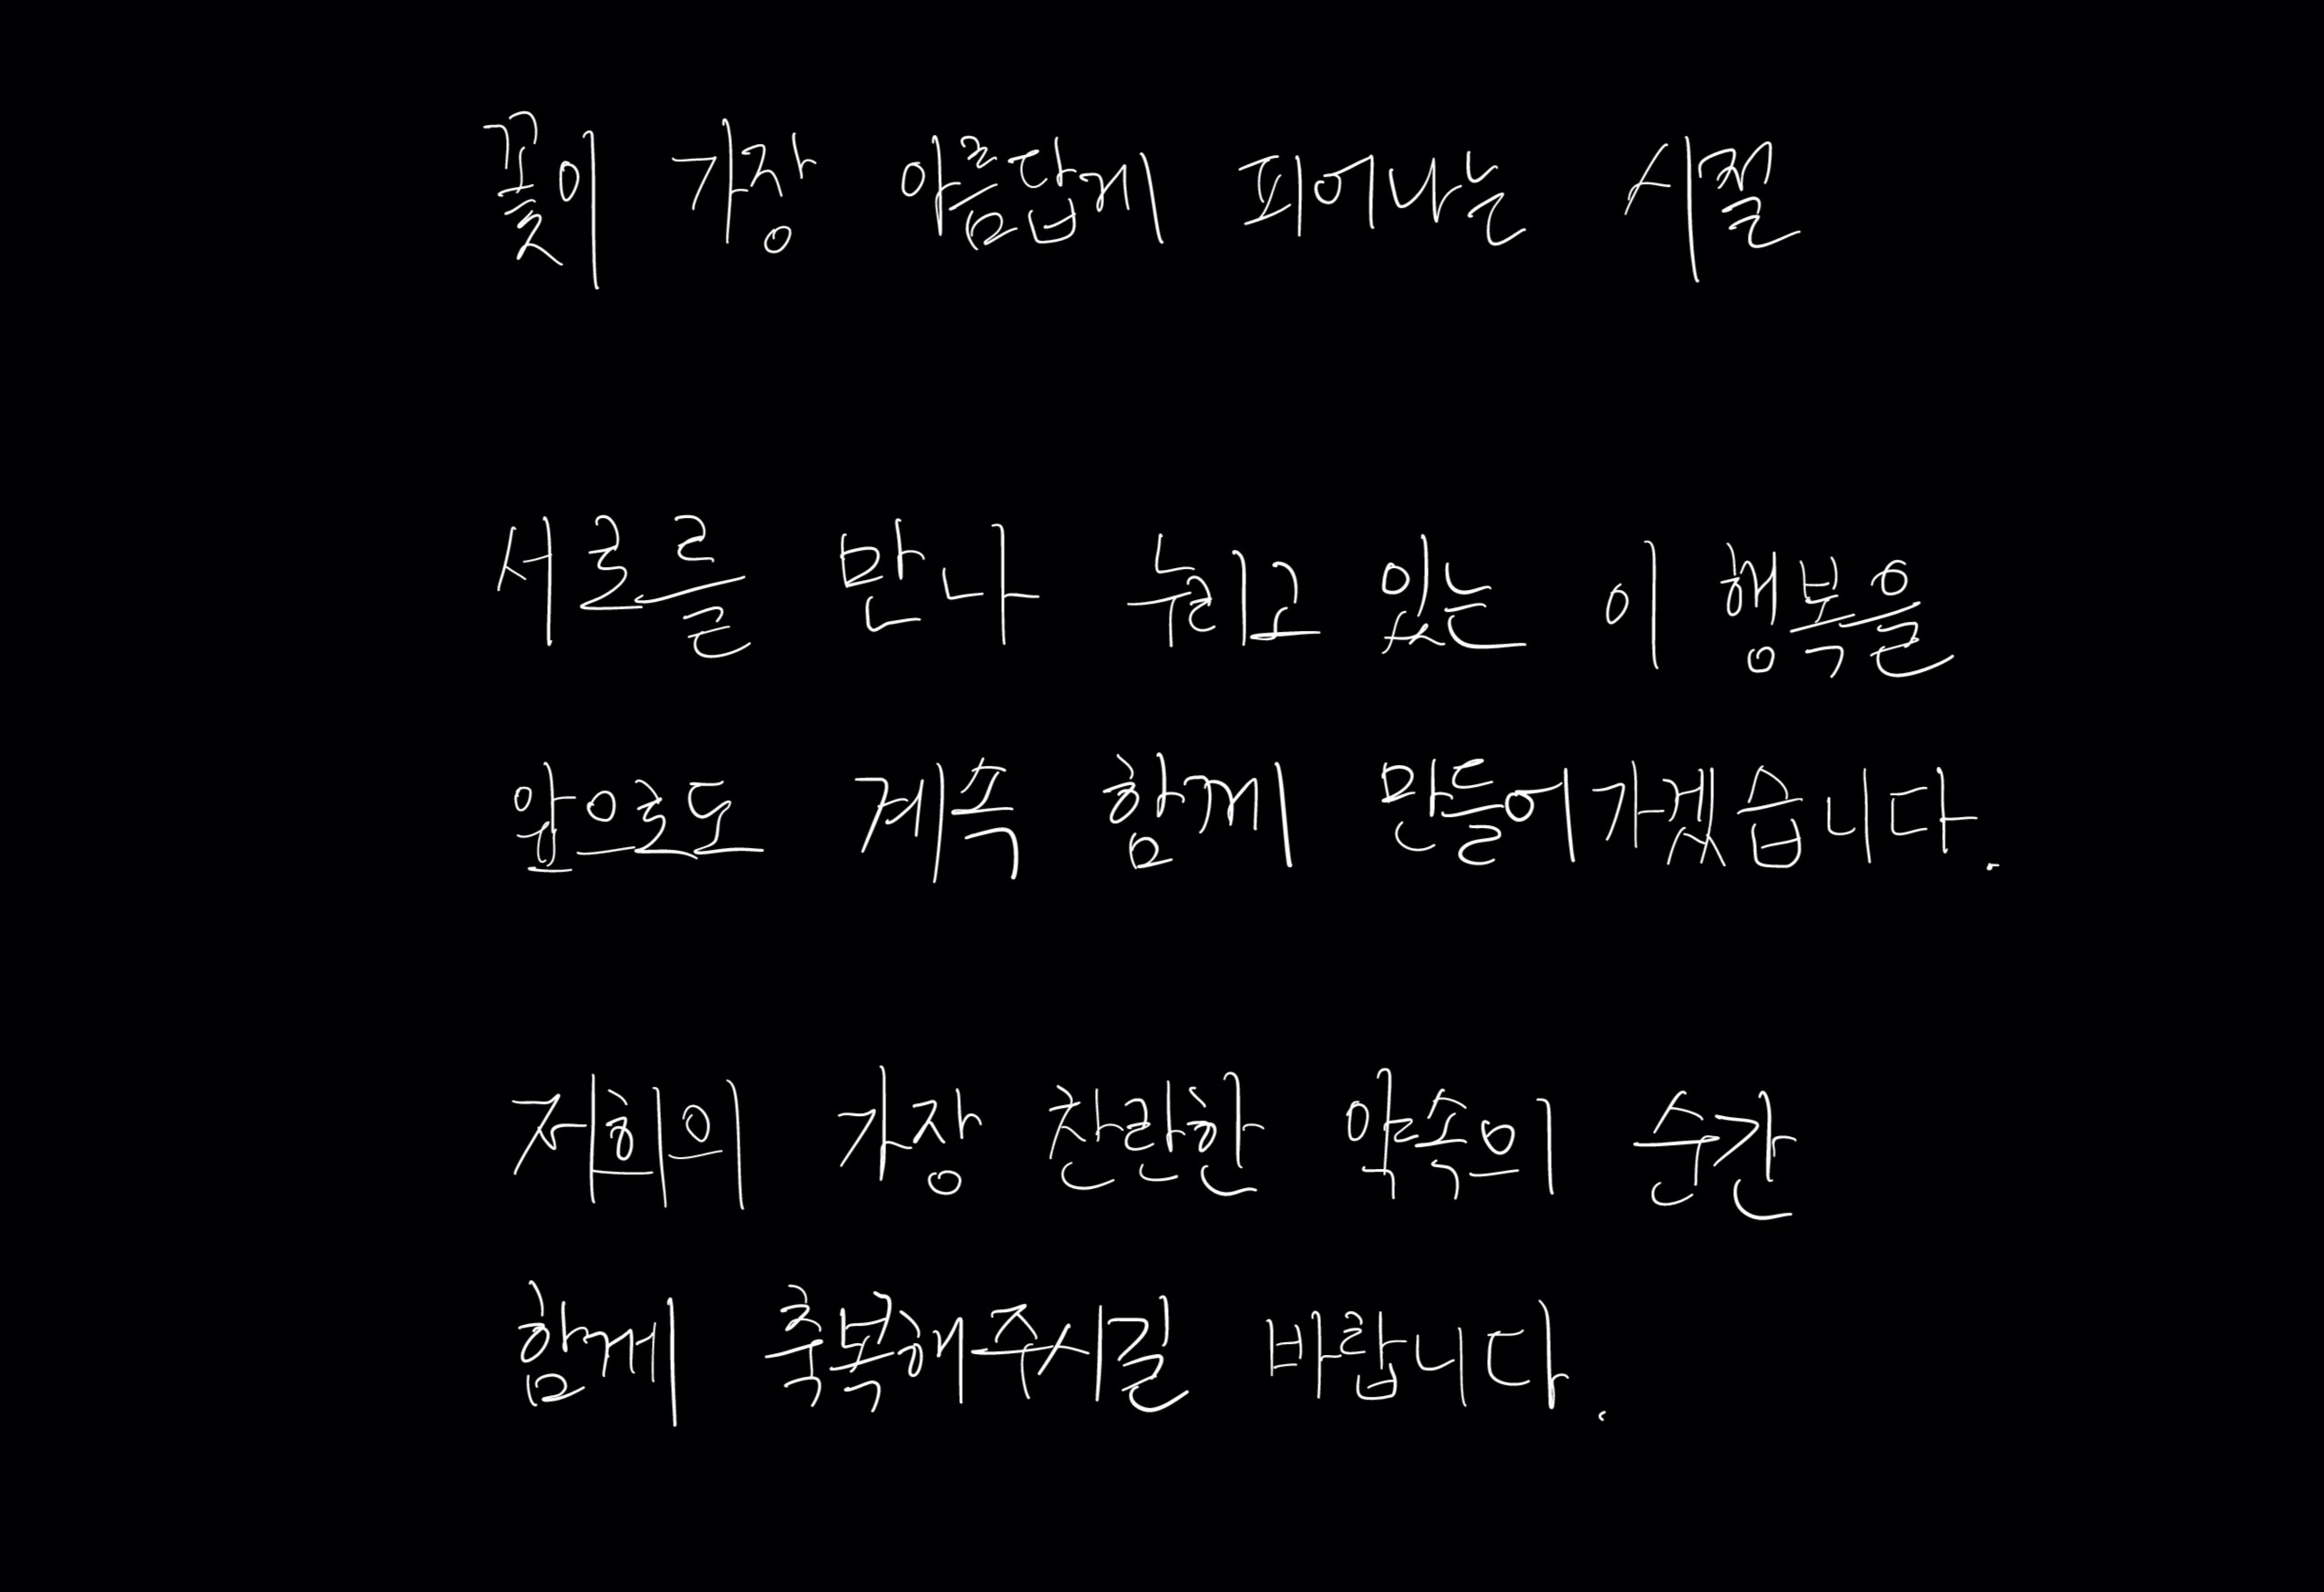 꽃이 가장 아름답게 피어나는 시절
서로를 만나 누리고 있는 이 행복을
앞으로도 계속 함께 만들어가겠습니다.
저희의 가장 찬란한 약속의 순간
함께 축복해주시길 바랍니다.